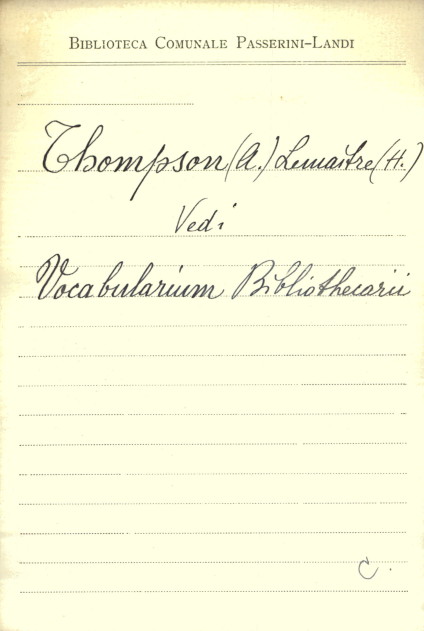 Biblioteca Comunale Passerini-Landi
Thompson (A.) Lemaître (H.)
Vedi
Vocabularium Bibliothecarii
C.